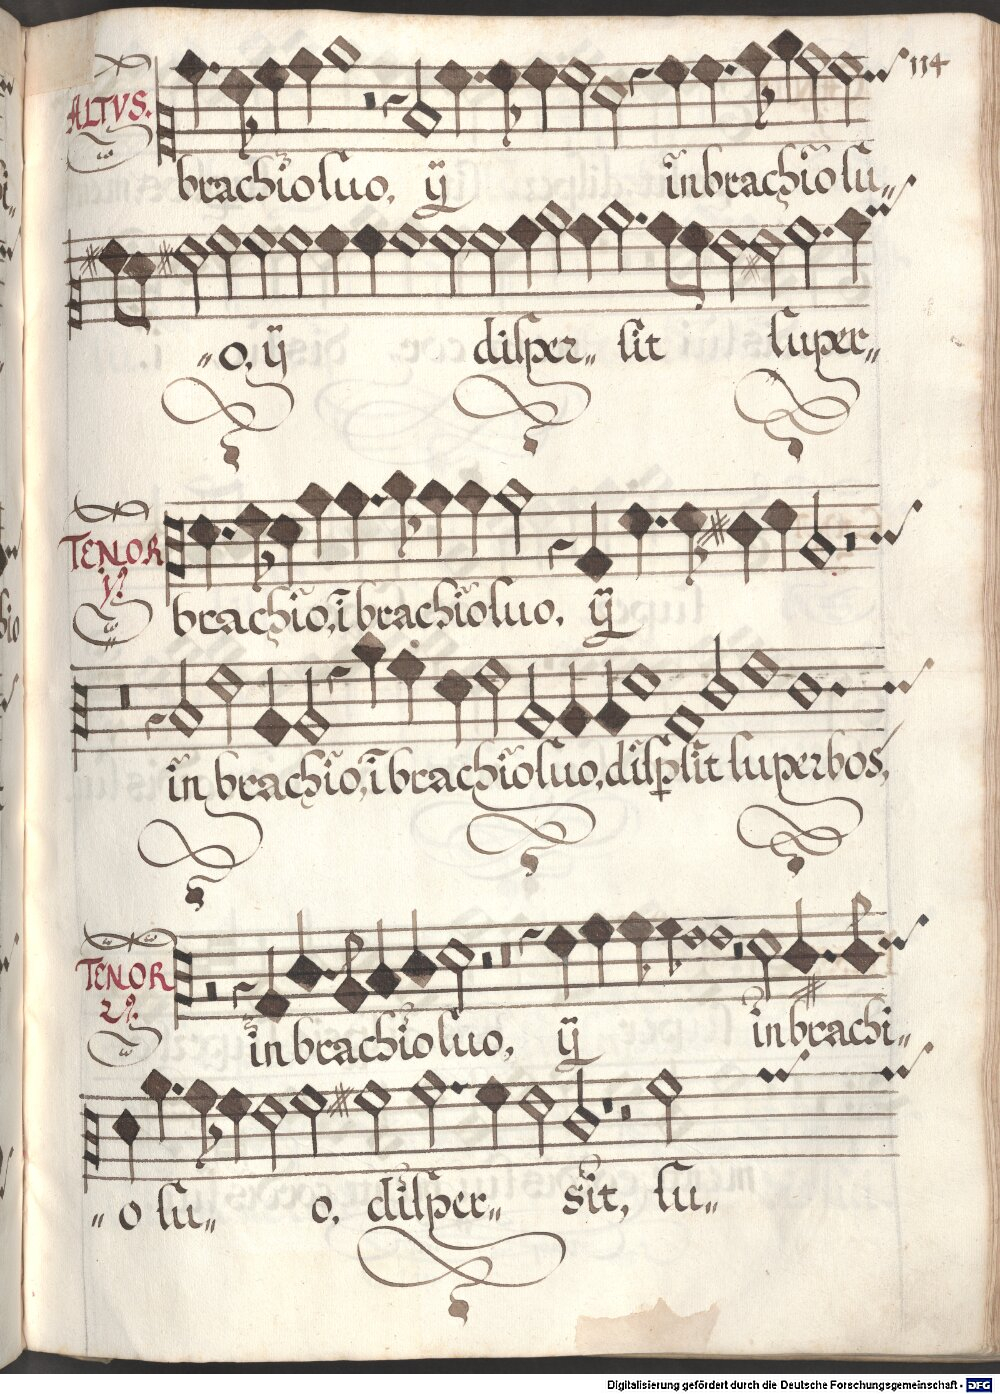 114
ALTVS.
brachio suo, ij inbrachio su„
„o, ij disper„ sit super„
TENOR
1º.
brachio, ĩ brachio suo, ij
in brachio, ĩ brachio suo, dispersit superbos,
TENOR
2º.
inbrachio suo, ij inbrachi„
„o su„ o, disper„ sit, su„
Digitalisierung gefördert durch die Deutsche Forschungsgemeinschaft - DFG